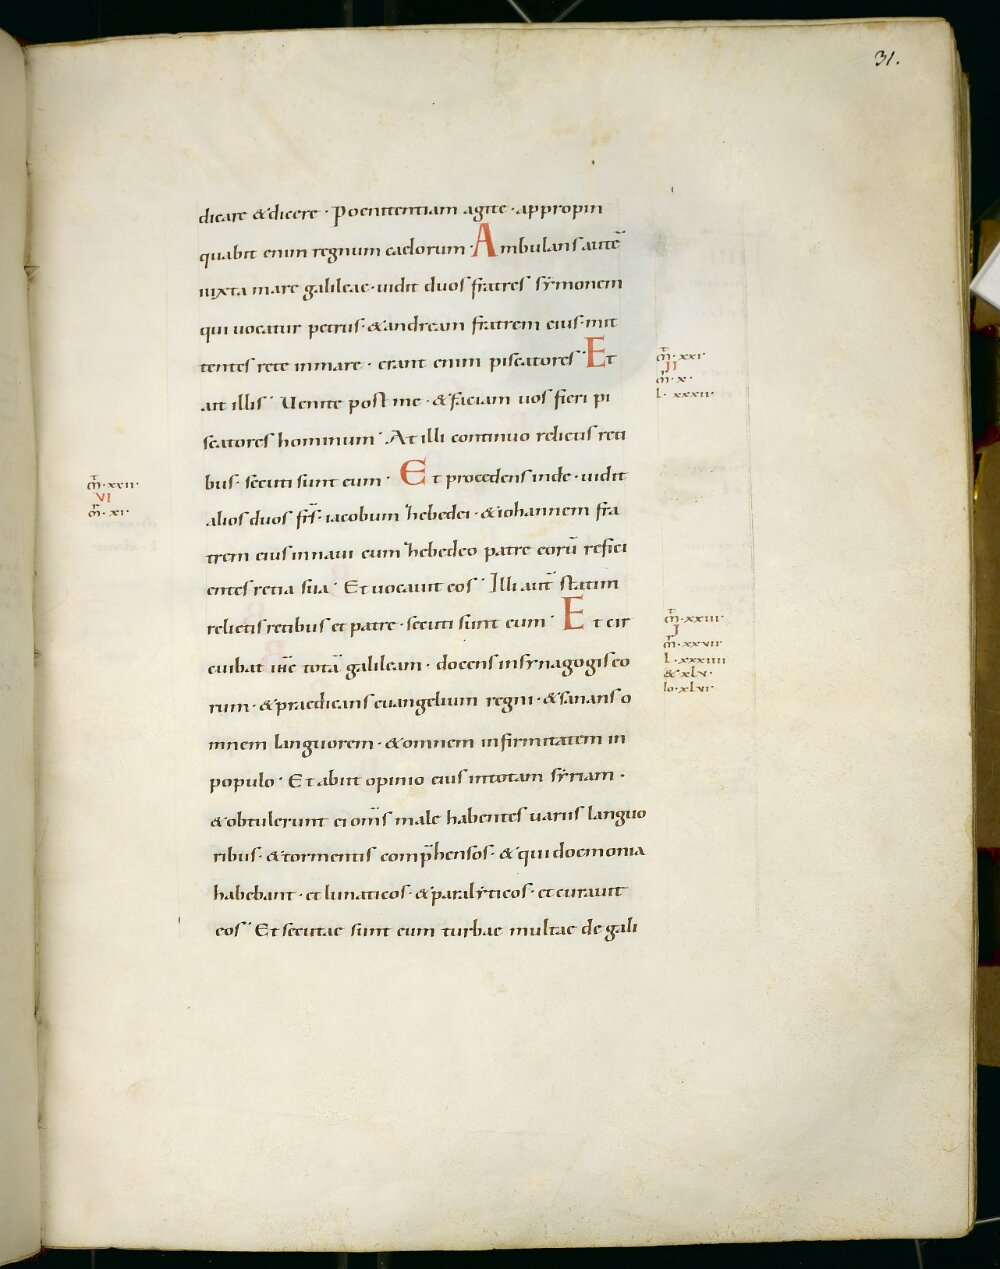 31.
dicare & dicere · Poenitentiam agite · appropin
quabit enim regnum caelorum · Ambulans autē
iuxta mare galileae · uidit duos fratres symonem
qui uocatur petrus · & andream fratrem eius · mit
tentes rete in mare · erant enim piscatores · Et
ait illis · Uenite post me · & faciam uos fieri pi
scatores hominum · At illi continuo relictis reti
bus · secuti sunt eum · Et procedens inde · uidit
alios duos frs̄ · iacobum hebedei · & iohannem fra
trem eius in naui cum hebedeo patre eorū refici
entes retia sua · Et uocauit eos · Illi aut̄ statim
relictis retibus et patre · secuti sunt eum · Et cir
cuibat ihc̄ totā galileam · docens in synagogis eo
rum · & praedicans euangelium regni · & sanans o
mnem languorem · & omnem infirmitatem in
populo · Et abiit opinio eius in totam syriam ·
& obtulerunt ei om̄s male habentes uariis languo
ribus · & tormentis comp̄hensos · & qui doemonia
habebant · et lunaticos · & paralyticos · et curauit
eos · Et secutae sunt eum turbae multae de gali
m̄t · xxi ·
II
m̄r · x ·
L · xxxii ·
m̄t · xxii ·
VI
m̄r · xi ·
m̄t · xxiii ·
I
m̄r · xxvii ·
L · xxxiiii
& xlv ·
Io · xlvi ·